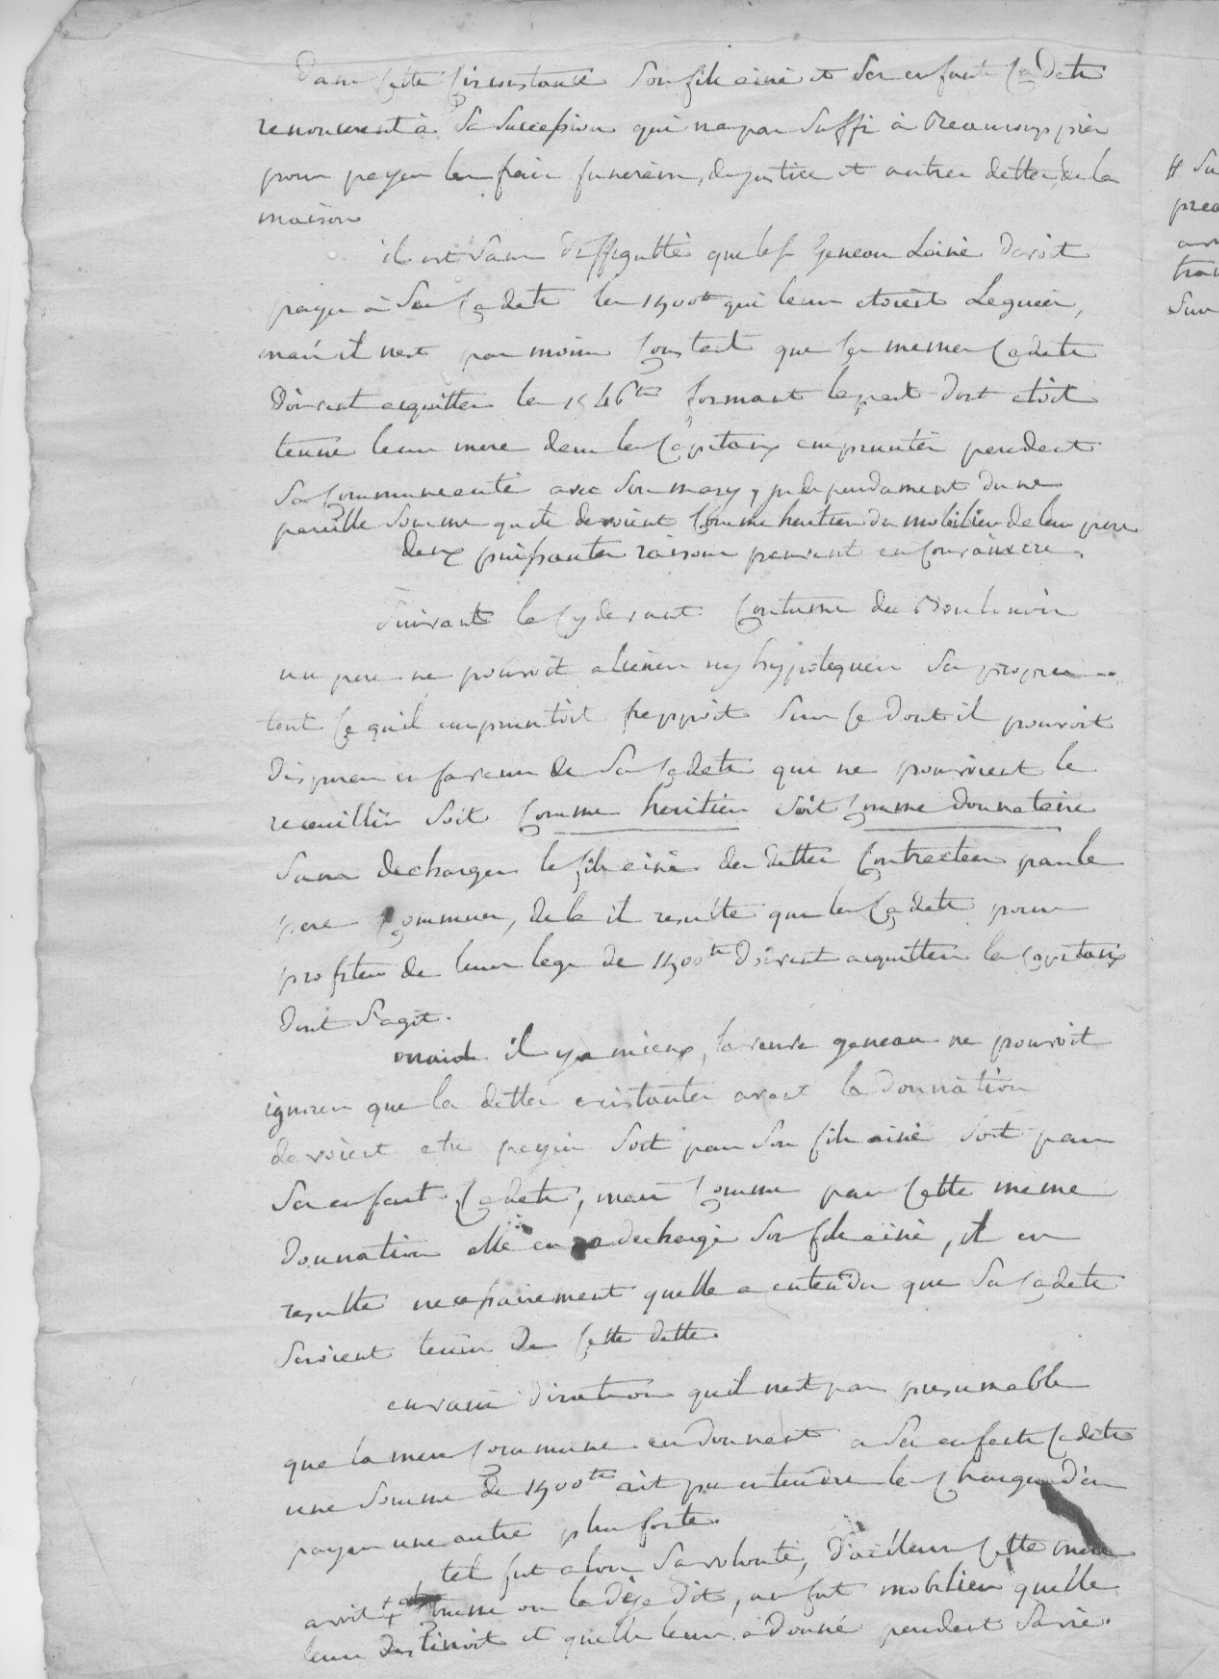 Dans cette circonstance son fils ainé et ses enfants cadets
renoncerent à sa succession qui na pas suffi à beaucoup près
pour payer les frais funeraires, de justice et autres dettes de la
maison
il est sans difficulté que le sr Geneau Lainé devoit
payer à ses cadets les 1500tt qui leur etoient Legués,
mais il nest pas moins constant que les memes cadets
doivent acquitter les 1546tt formant la part dont etoit
tenue leur mere dans les capitaux empruntés pendant
sa communeauté avec son mary, independament dune
pareille somme quils devoient comme heritiers du mobilier de leur pere
deux puissantes raisons peuvent en convaincre.
Suivant la cydevant coutume du Boulenois
un pere ne pouvoit aliener ny hypotequer ses propres
tout ce quil empruntoit frappoit sur ce dont il pouvoit
disposer en faveur de ses cadets qui ne pouvoient le
recueillir soit comme heritier soit comme donnataire
sans decharger le fils ainé des dettes contractees par le
pere commun, de la il resulte que les cadets pour
profiter de leur legs de 1500tt doivent acquitter les capitaux
dont s'agit.
mais il y a mieux, la veuve geneau ne pouvoit
ignorer que les dettes existantes avant la donnation
devoient etre payés soit par son fils ainé soit par
ses enfants cadets, mais comme par cette meme
donnation elle en a dechargé son fils ainé, il en
resulte necessairement quelle a entendu que ses cadets
seroient tenus de cette dette.
en vain diroit on quil nest pas presumable
que la mere commune en donnant a ses enfants cadets
une somme de 1500tt ait pu entendre les charger d'en
payer une autre plus forte.
tel fut alors sa volonté, d'ailleurs cette mere
avoit comme on la deja dit, un fort mobilier quelle
leur destinoit et quelle leur a donné pendant sa vie.